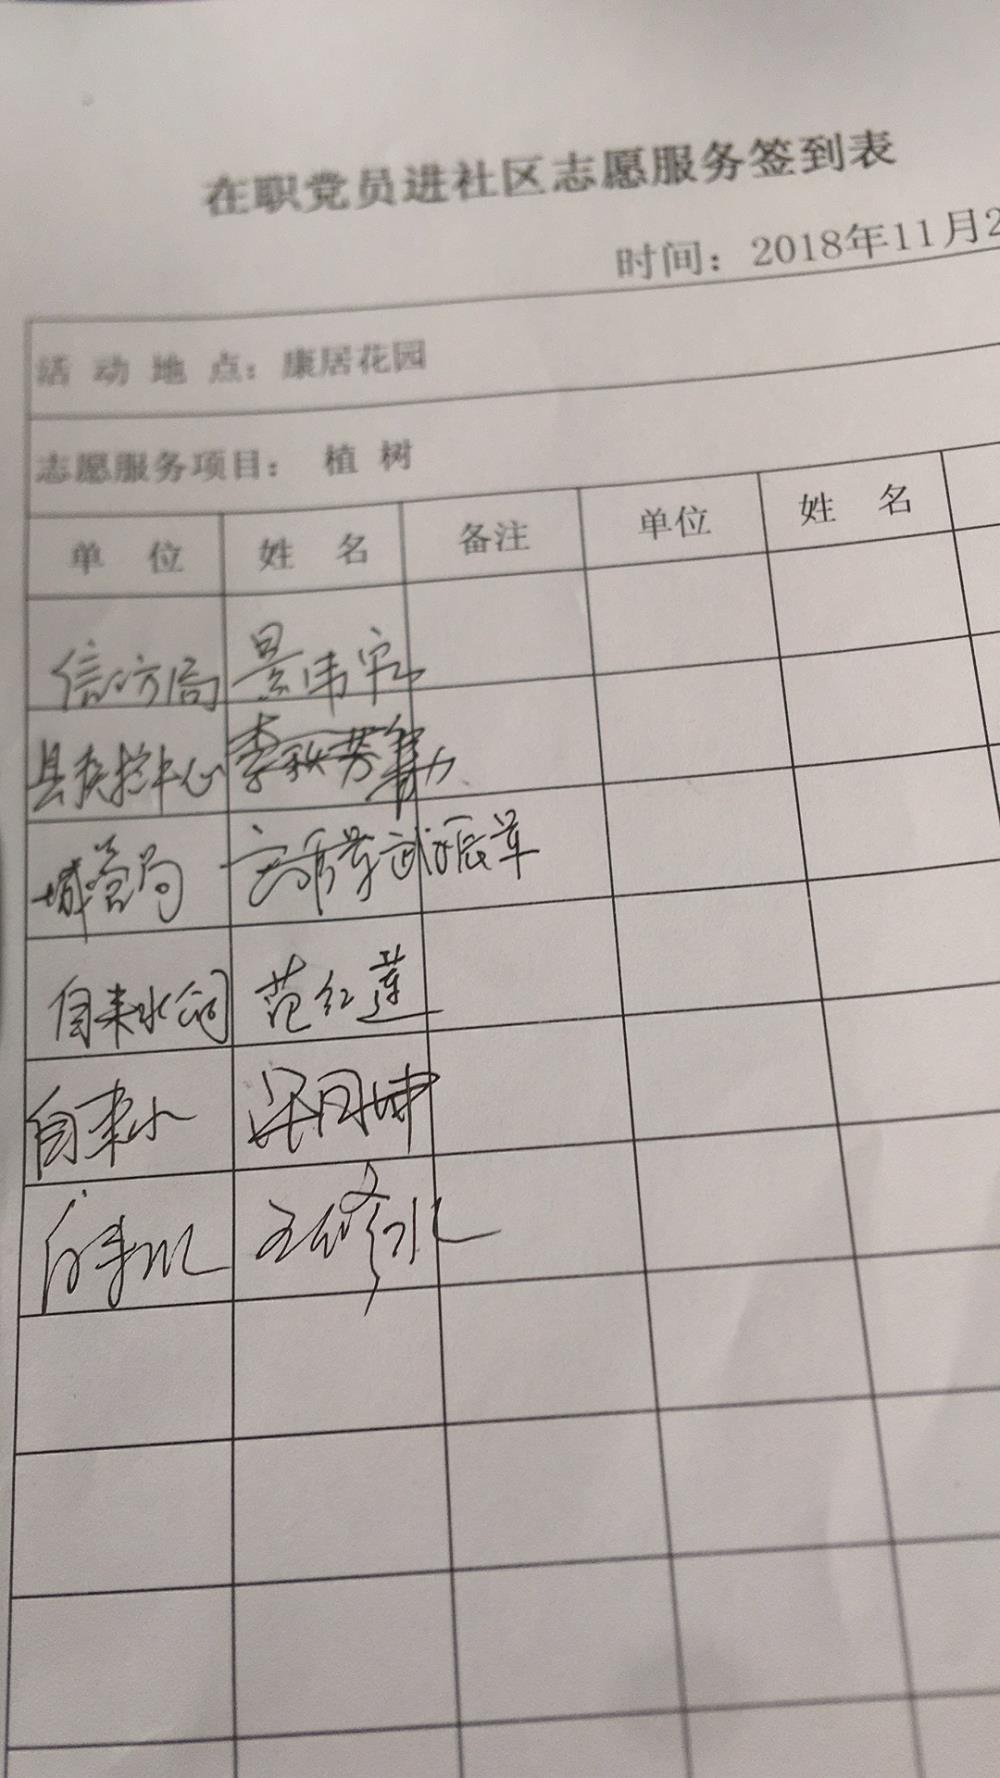 在职党员进社区志愿服务签到表
时间：2018年11月2
活 动 地 点：康居花园
志愿服务项目： 植 树
单 位 姓 名 备注 单位 姓 名
信访局 景伟宏
县疾控中心 李秋芳
城管局 武振华
自来水公司 范红莲
自来水
自来水 王修水